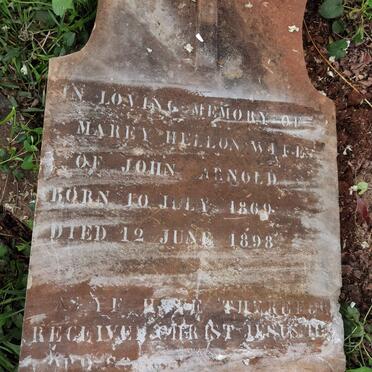 IN LOVING MEMORY OF
MAREY HELLON WIFE
OF JOHN ARNOLD
BORN 10 JULY 1860
DIED 12 JUNE 1898
AS YE HAVE THEREFORE
RECEIVED CHRIST JESUS